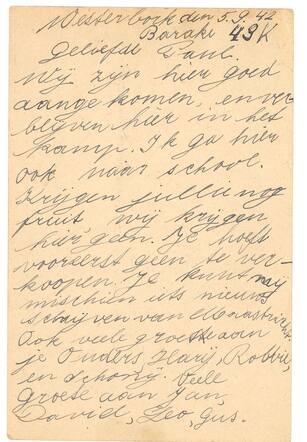 Westerbork den 5.9.42
Barak 43K
Geliefde Paul.
Wij zijn hier goed
aangekomen, en ver-
blijven hier in het
kamp. Ik ga hier
ook naar school.
Krijgen jullie nog
fruit wij krijgen
hier geen. Je hoeft
voor eerst geen te ver-
koopen. Je kunt mij
mischien iets nieuws
schrijven van Maastricht.
Ook veele groete aan
je Ouders Harij, Robbie,
en Schonij. Veele
groete aan Jan,
David, Leo, Gus.